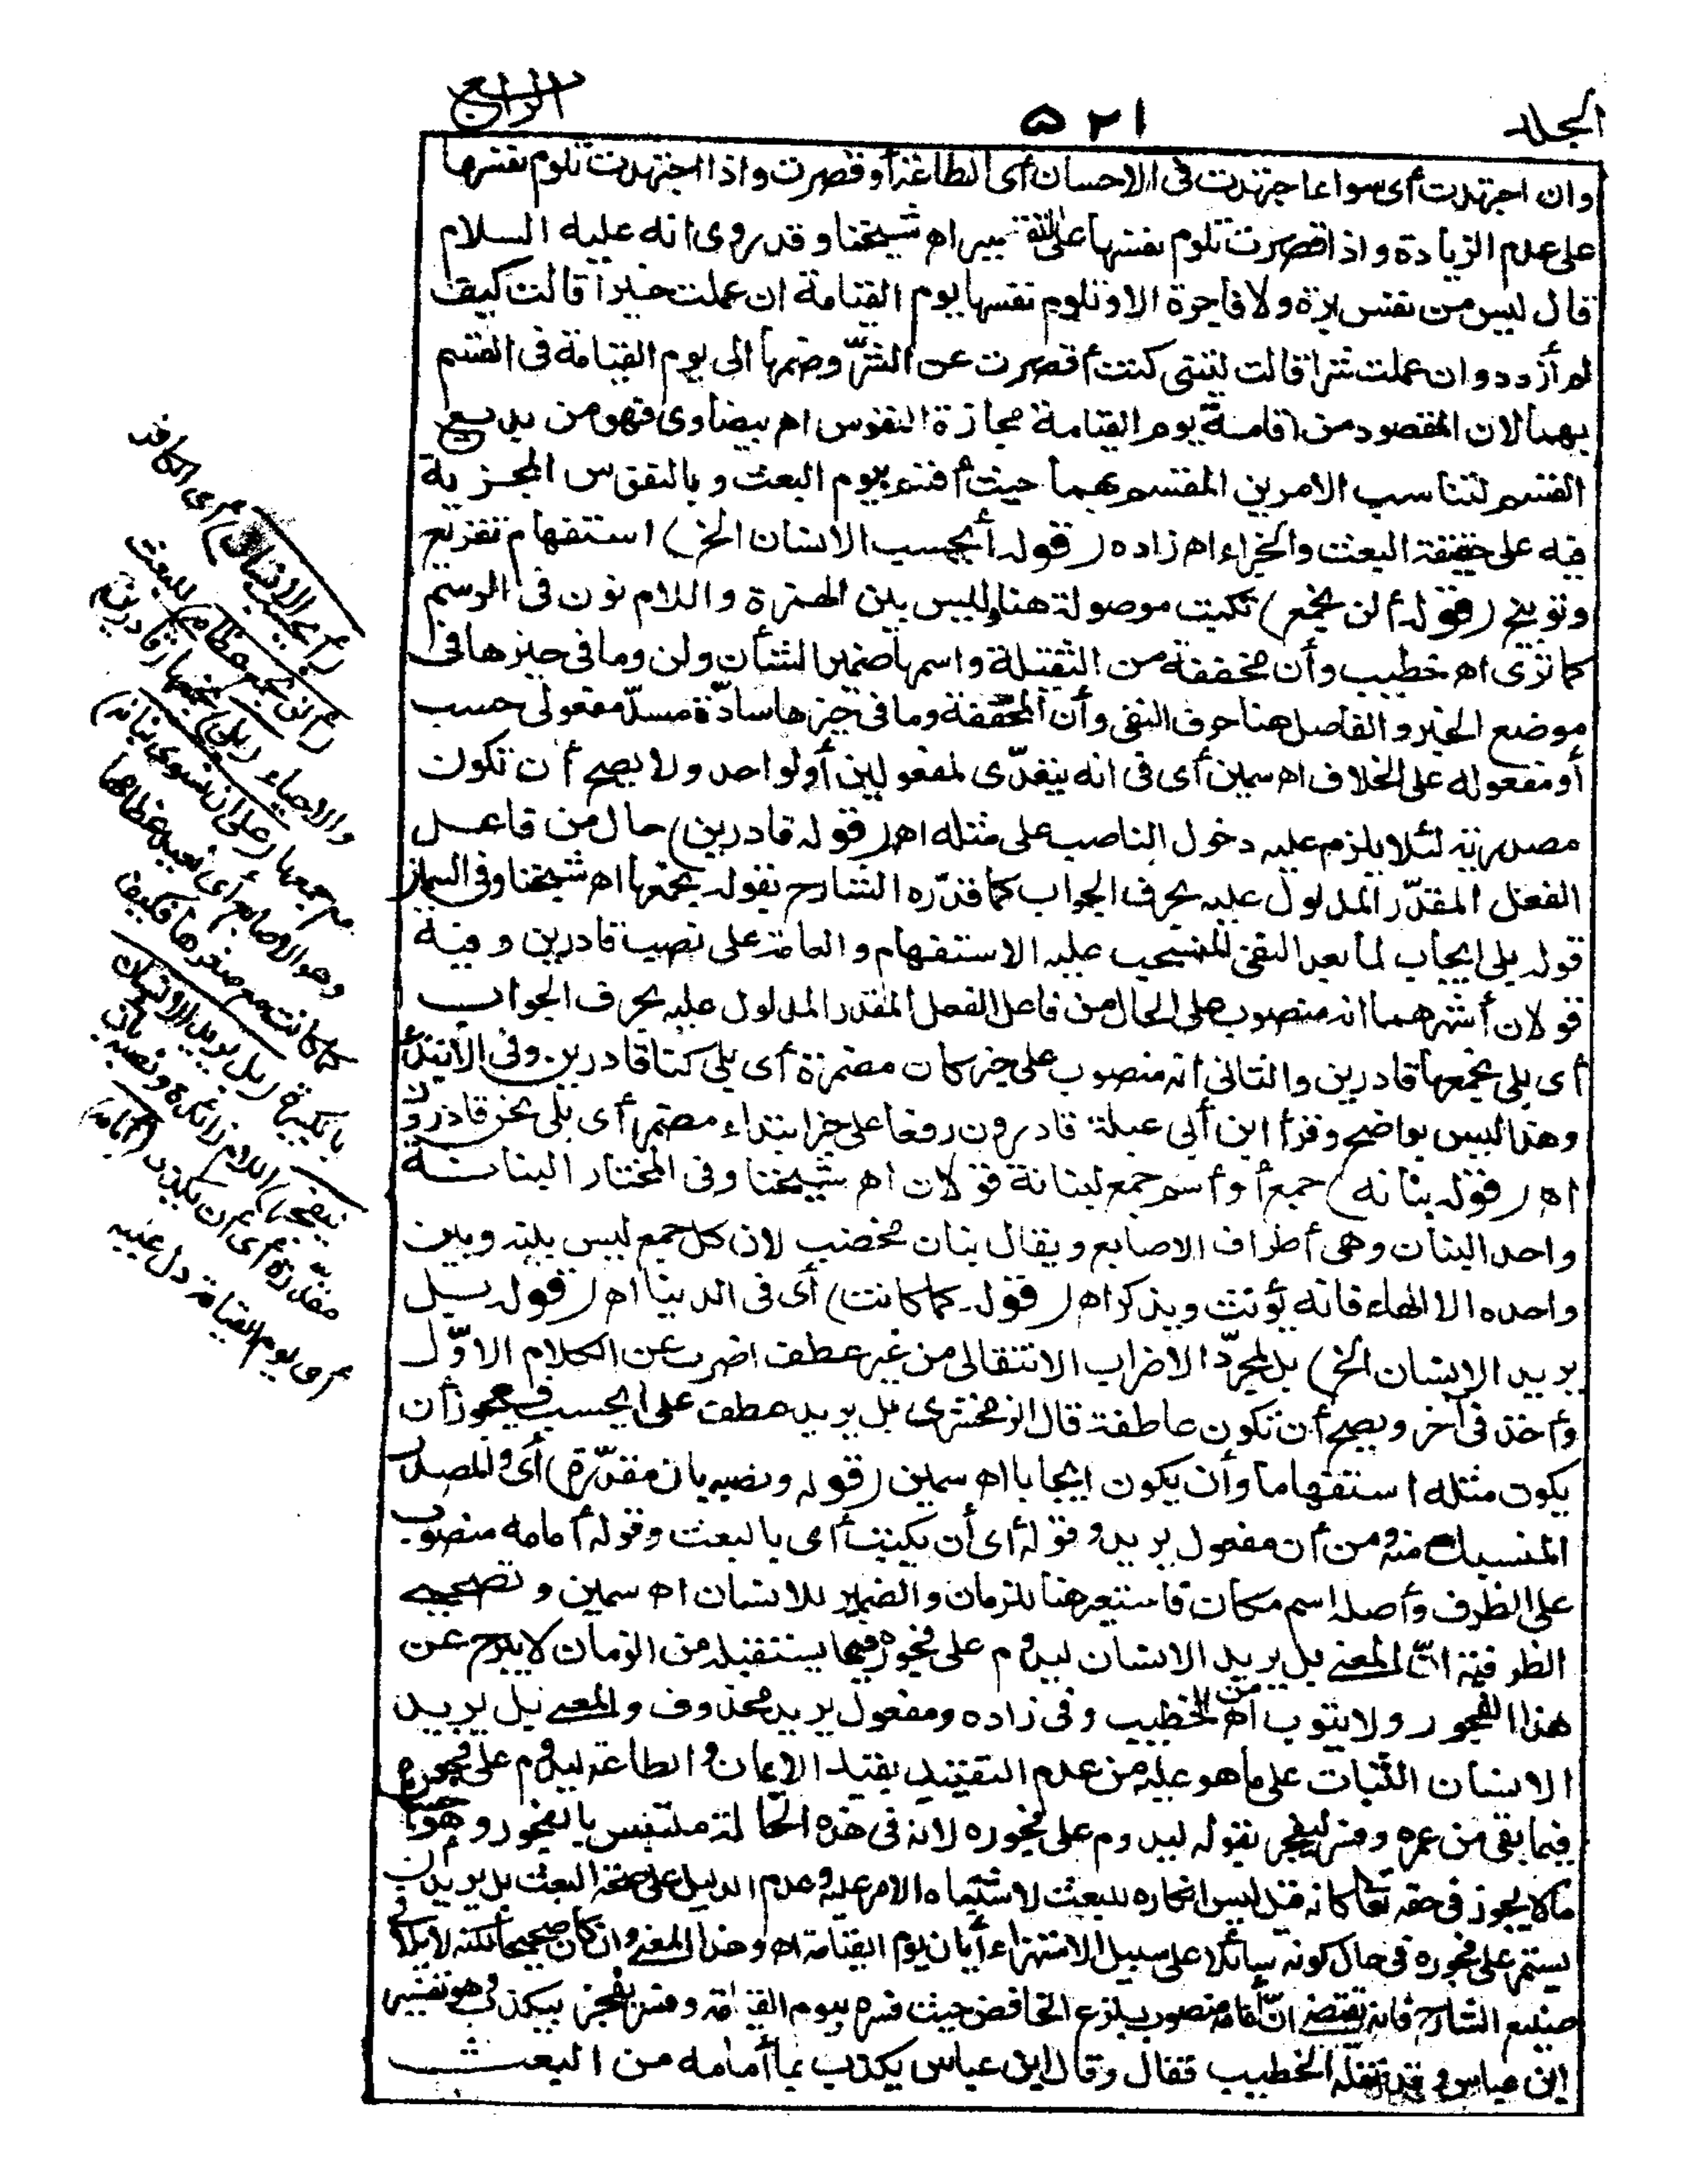 المجلد
٥٢١
الرابع
وان اجتهدت أى سواء اجتهدت فى الاحسان أى الطاعة أو قصرت واذا اجتهدت تلوم نفسها
على عدم الزيادة واذا قصرت تلوم نفسها على التقصير اه شيخنا وقد روى انه عليه السلام
قال ليس من نفس برة ولا فاجرة الا وتلوم نفسها يوم القيامة ان عملت خيرا قالت كيف
لم أزدد وان عملت شرا قالت ليتنى كنت أقصرت عن الشرّ وضمها الى يوم القيامة فى القسم
بهما لان المقصود من اقامة يوم القيامة مجازاة النفوس اه بيضاوى فهو من بديع
القسم لتناسب الامرين المقسم بهما حيث أقسم بيوم البعث وبالنفوس المجزية
فيه على حقيقة البعث والجزاء اه زاده (قوله أيحسب الانسان الخ) استفهام تقريع
وتوبيخ (قوله ألن نجمع) تكتب موصولة هنا وليس بين الهمزة واللام نون فى الرسم
كما ترى اه خطيب وأن مخففة من الثقيلة واسمها ضمير الشأن ولن وما فى حيزها فى
موضع الخبر والفاصل هنا حرف النفى وأن المخففة وما فى حيزها سادّة مسدّ مفعولى حسب
أو مفعوله على الخلاف اه سمين أى فى انه يتعدّى لمفعولين أو لواحد ولا يصح أن تكون
مصدرية لئلا يلزم عليه دخول الناصب على مثله اه (قوله قادرين) حال من فاعل
الفعل المقدّر المدلول عليه بحرف الجواب كما قدّره الشارح بقوله نجمعها اه شيخنا وفى السمين
قوله بلى ايجاب لما بعد النفى المنسحب عليه الاستفهام والعامة على نصب قادرين وفيه
قولان أشهرهما انه منصوب على الحال من فاعل الفعل المقدر المدلول عليه بحرف الجواب
أى بلى نجمعها قادرين والثانى انه منصوب على خبر كان مضمرة أى بلى كنا قادرين وفى الابتداء
وهذا ليس بواضح وقرأ ابن أبى عبلة قادرون رفعا على خبر ابتداء مضمر أى بلى نحن قادرون
اه (قوله بنانه) جمع أو اسم جمع لبنانة قولان اه شيخنا وفى المختار البنانة
واحد البنان وهى أطراف الاصابع ويقال بنان مخضب لان كل جمع ليس بينه وبين
واحده الا الهاء فانه يؤنث ويذكر اه (قوله كما كانت) أى فى الدنيا اه (قوله بل
يريد الانسان الخ) بل لمجرّد الاضراب الانتقالى من غير عطف اضرب عن الكلام الاوّل
وأخذ فى آخر ويصح أن تكون عاطفة قال الزمخشرى بل يريد عطف على أيحسب فيجوز أن
يكون مثله استفهاما وأن يكون ايجابا اه سمين (قوله ونصبه بان مقدّرة) أى والمصدر
المنسبك منه ومن أن مفعول يريد وقوله أى أن يكذب أى بالبعث وقوله أمامه منصوب
على الظرف وأصله اسم مكان فاستعير هنا للزمان والضمير للانسان اه سمين وتصحيح
الظرفية ان المعنى بل يريد الانسان ليدوم على فجوره فيما يستقبله من الزمان لا يبرح عن
هذا الفجور ولا يتوب اه من الخطيب وفى زاده ومفعول يريد محذوف والمعنى بل يريد
الانسان الثبات على ما هو عليه من عدم التقييد بقيد الايمان والطاعة ليدوم على فجوره
فيما بقى من عمره وفسر ليفجر بقوله ليدوم على فجوره لانه فى هذه الحالة متلبس بالفجور
ما لا يجوز فى حقه تعالى كانه قيل ليس انكاره للبعث لاشتباه الامر عليه وعدم الدليل على صحة البعث بل يريد أن
يستمر على فجوره فى حال كونه سائلا على سبيل الاستهزاء أيان يوم القيامة اه وهذا المعنى وان كان صحيحا لكنه لا يلائم
صنيع الشارح فانه يقتضى انّ أمامه منصوب بنزع الخافض حيث فسره بيوم القيامة وفسر يفجر بيكذب وهو تفسير
ابن عباس وقد نقله الخطيب فقال وقال ابن عباس يكذب بما أمامه من البعث
(أيحسب الانسان) أى الكافر
(ألن نجمع عظامه) للبعث
والاحياء (بلى) نجمعها (قادرين)
مع جمعها (على ان نسوى بنانه)
وهو الاصابع أى نعيد عظامها
كما كانت مع صغرها فكيف
بالكبيرة (بل يريد الانسان
ليفجر) اللام زائدة ونصبه بأن
مقدّرة أى أن يكذب (أمامه)
أى يوم القيامة دل عليه